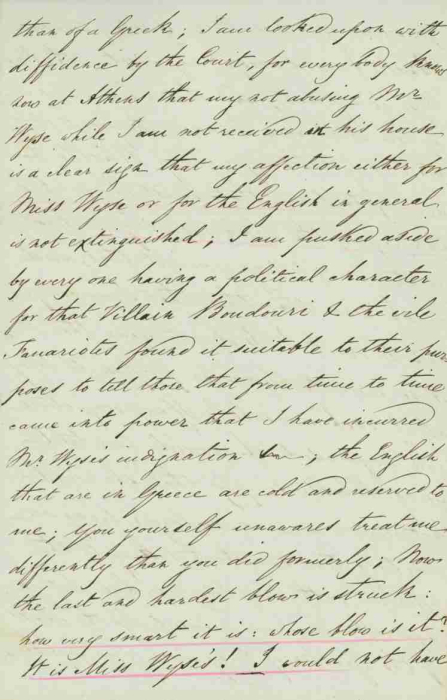 than of a Greek; I am looked upon with
diffidence by the Court, for every body knows
now at Athens that my not abusing Mr
Wyse while I am not received at his house
is a clear sign that my affection either for
Miss Wyse or for the English in general
is not extinguished; I am pushed aside
by every one having a political character
for that Villain Boudouri & the vile
Fanariotes found it suitable to their pur
poses to tell those that from time to time
came into power that I have incurred
Mr Wyse's indignation &c; the English
that are in Greece are cold and reserved to
me; you yourself unawares treat me
differently than you did formerly; Now
the last and hardest blow is struck:
how very smart it is: whose blow is it?
It is Miss Wyse's! I would not have